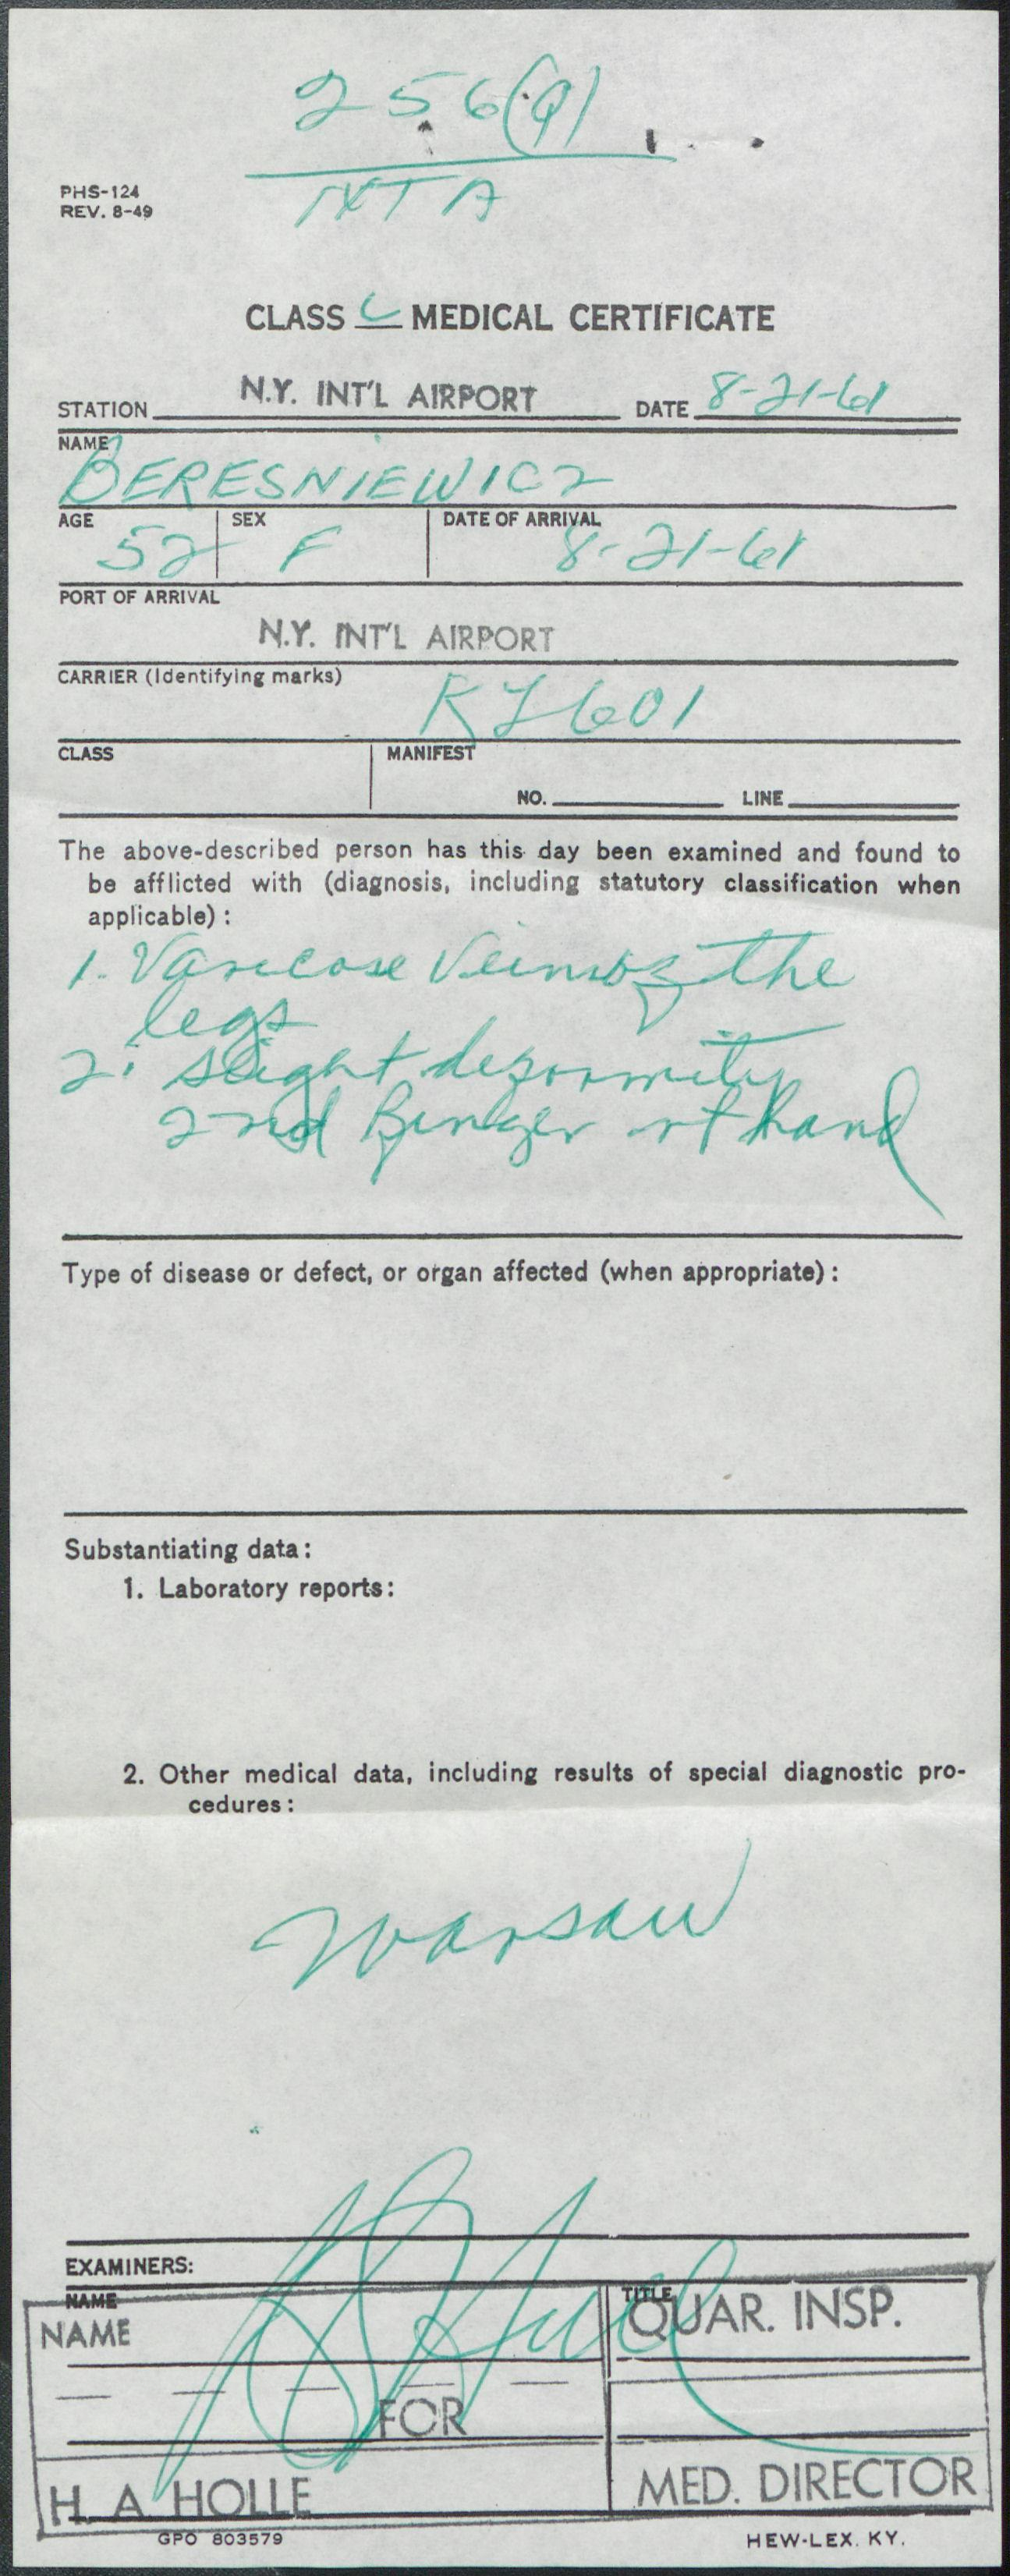 256(9)
PHS-124
REV. 8-49
CLASS C MEDICAL CERTIFICATE
STATION N.Y. INT'L AIRPORT DATE 8-21-61
NAME
BERESNIEWICZ
AGE 52 SEX F DATE OF ARRIVAL 8-21-61
PORT OF ARRIVAL
N.Y. INT'L AIRPORT
CARRIER (Identifying marks)
601
CLASS MANIFEST
NO. LINE
The above-described person has this day been examined and found to
be afflicted with (diagnosis, including statutory classification when
applicable):
1. Varicose Veins of the
legs
2. slight deformity
2nd finger rt hand
Type of disease or defect, or organ affected (when appropriate):
Substantiating data:
1. Laboratory reports:
2. Other medical data, including results of special diagnostic pro-
cedures:
Warsaw
EXAMINERS:
NAME TITLE
NAME QUAR. INSP.
FOR
H. A. HOLLE MED. DIRECTOR
GPO 803579 HEW-LEX. KY.